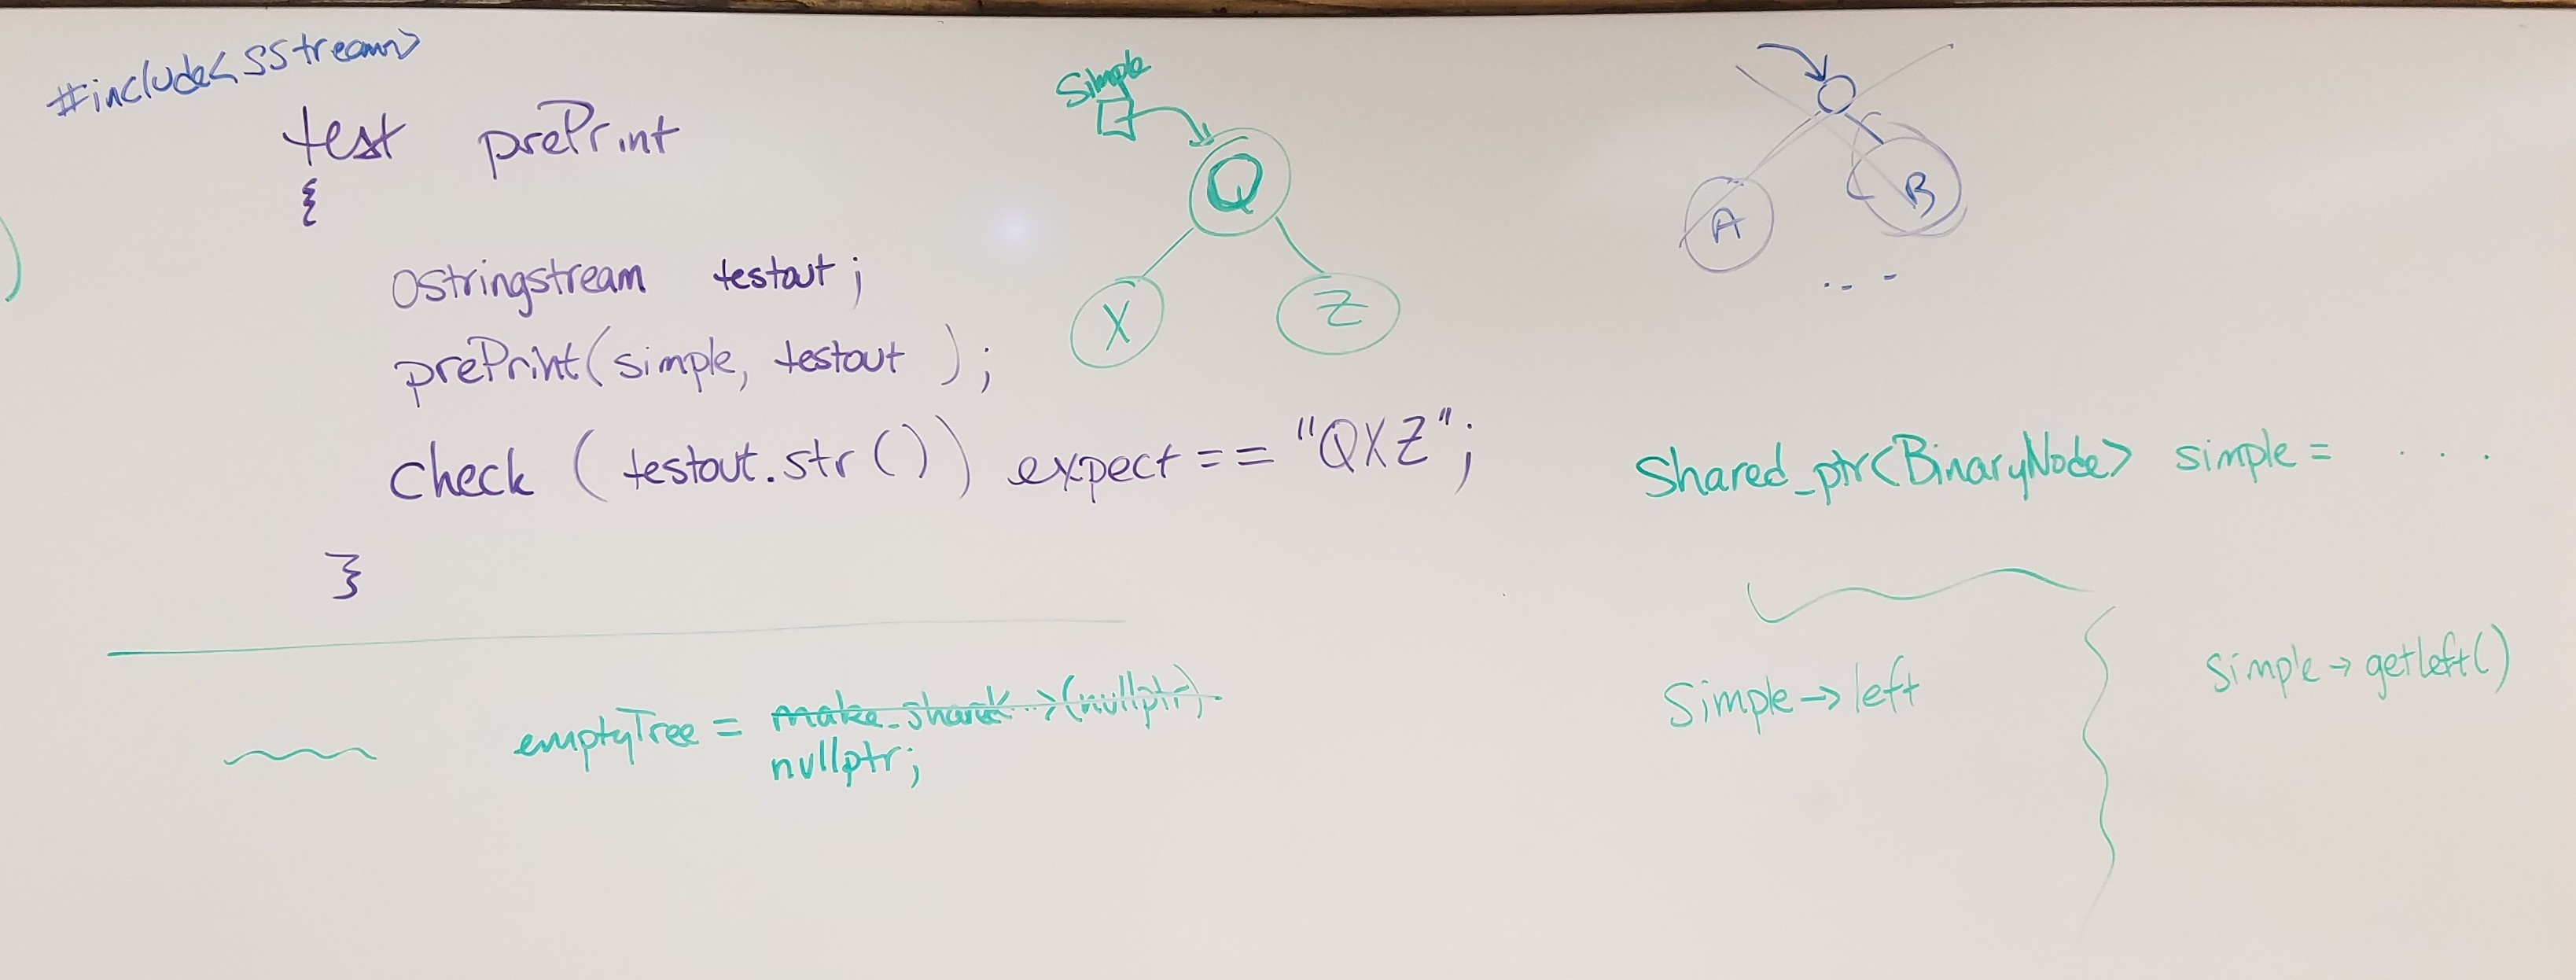 #include<sstream>
test prePrint
{
ostringstream testout;
prePrint(simple, testout );
check (testout.str()) expect == "QXZ";
}
Simple
Q
X
Z
A
B
Shared_ptr<BinaryNode> simple = ....
Simple→left
Simple→getLeft()
emptyTree = (nullptr).
nullptr;